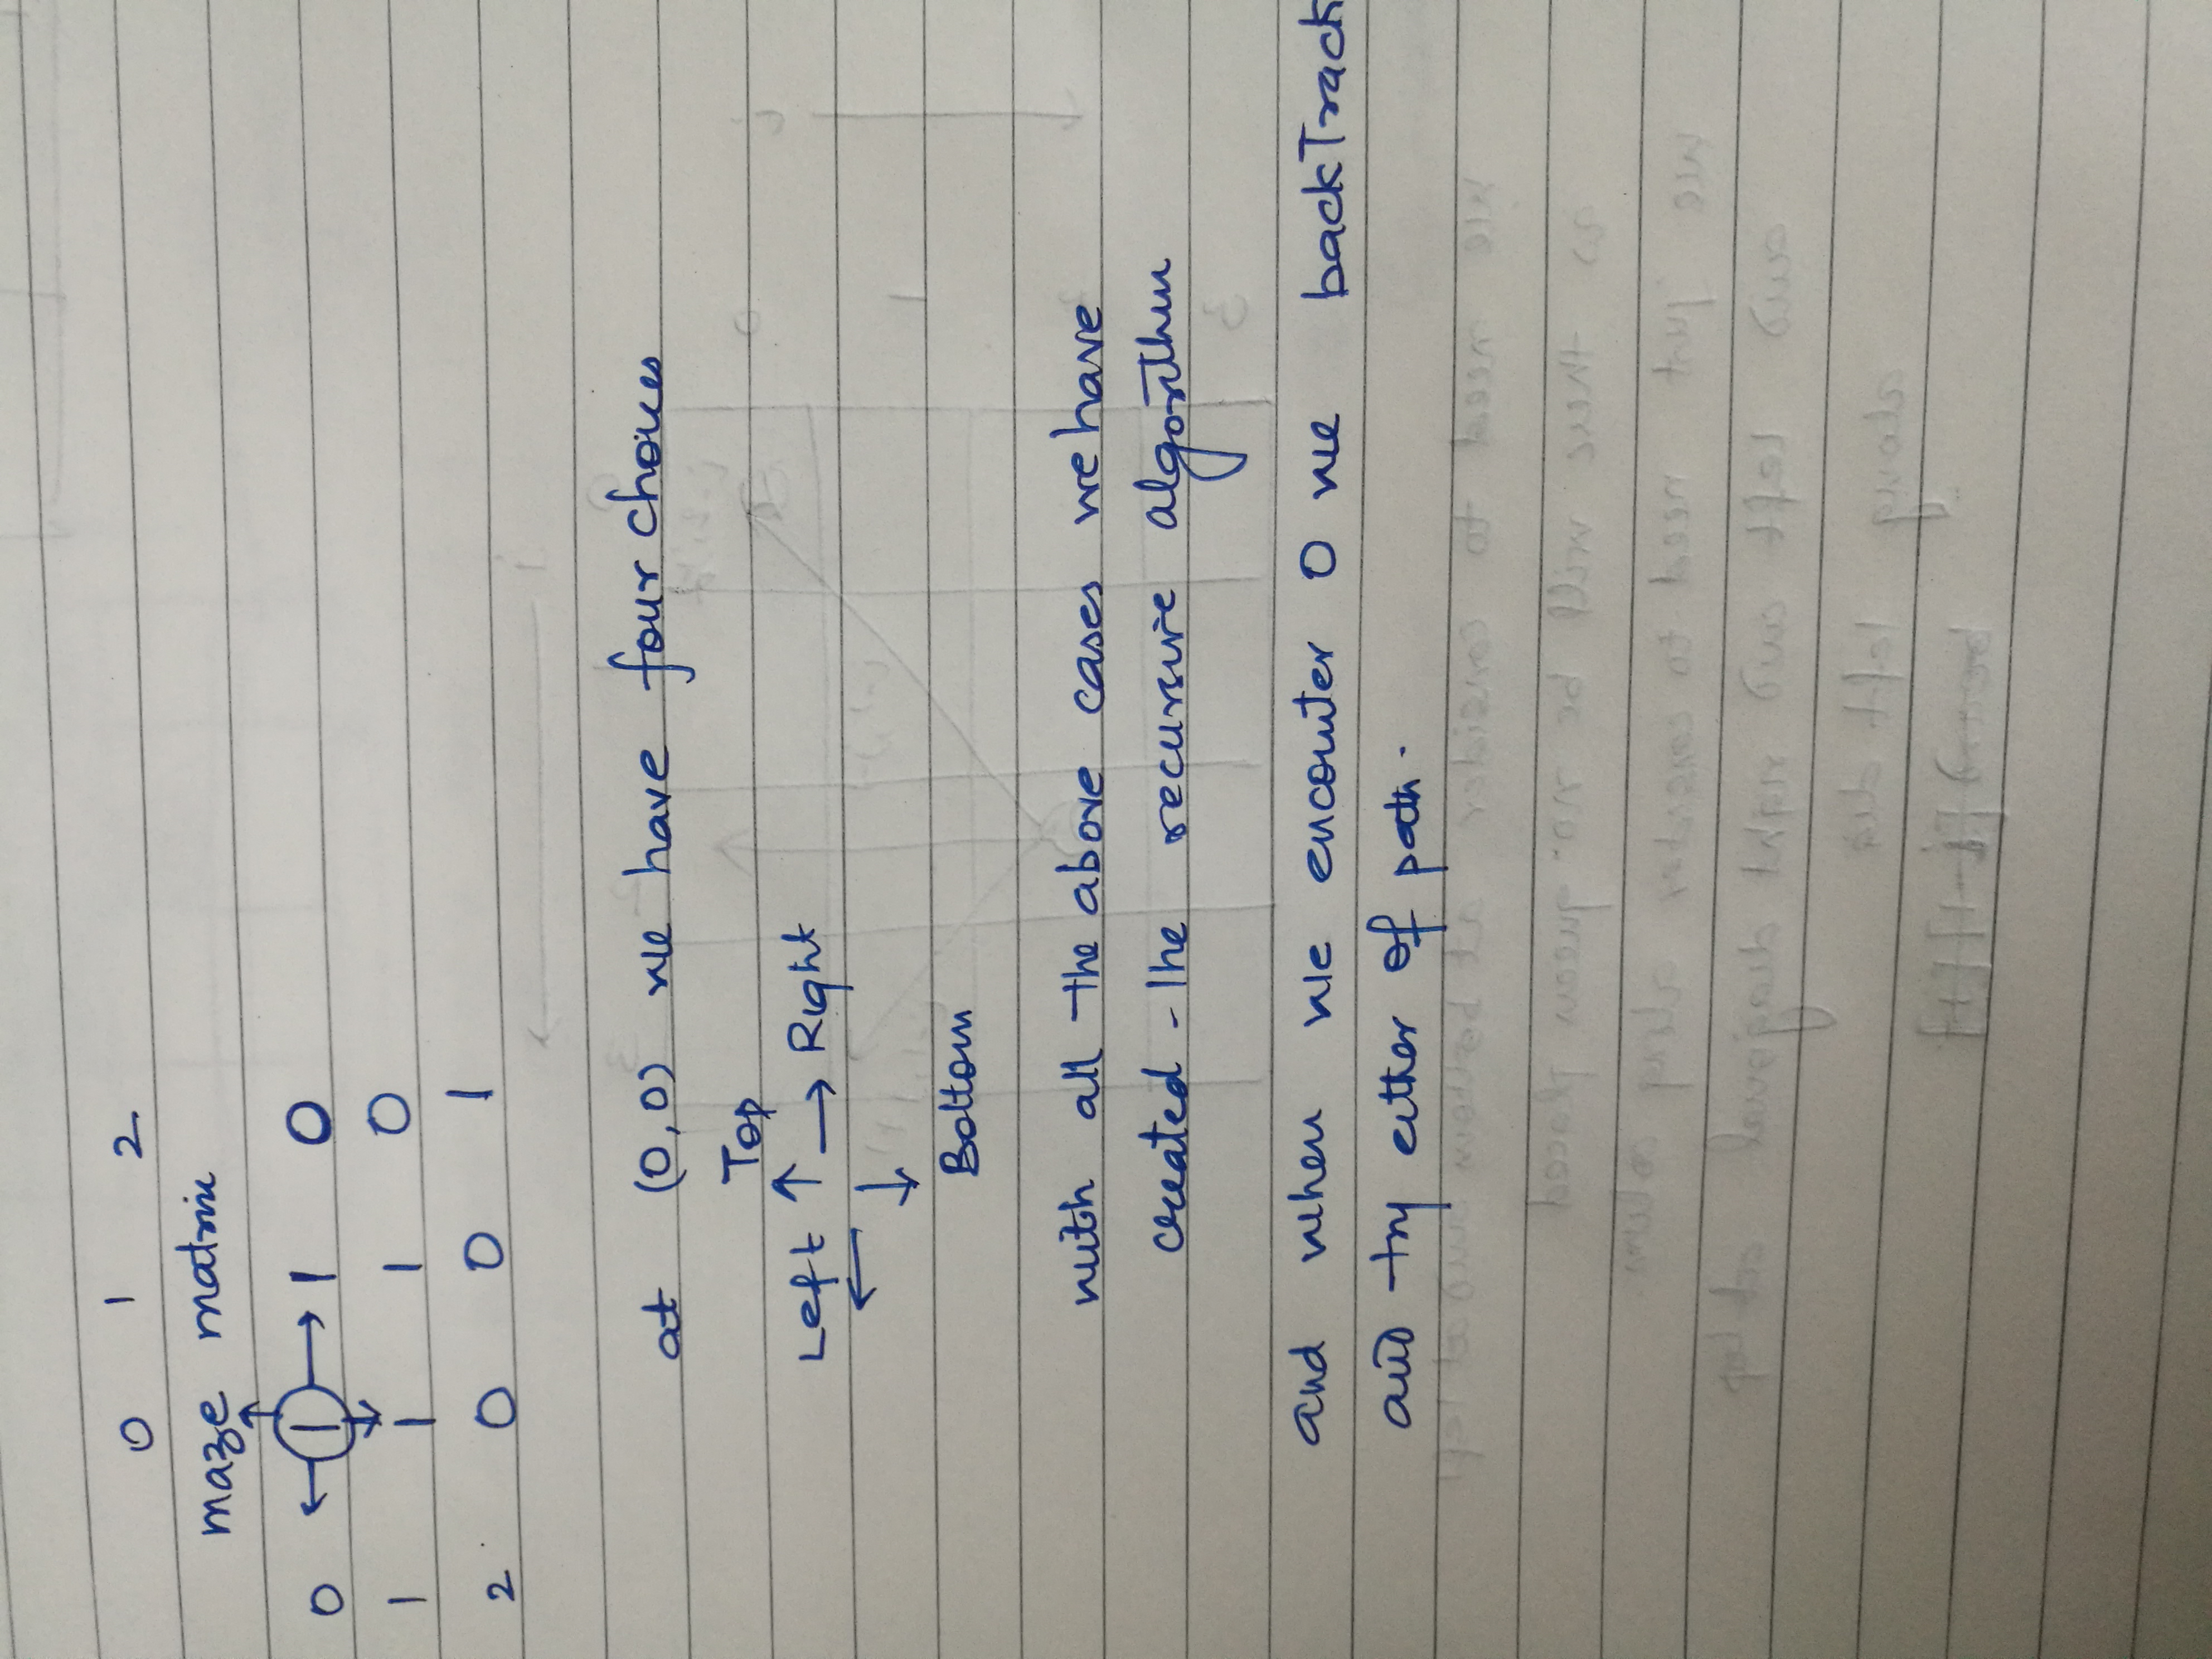 0 1 2
maze matrix
0 1 1 0
1 1 1 0
2 0 0 1
at (0,0) we have four choices
Top
Left → Right
Bottom
with all the above cases we have
created the recursive algorithm
and when we encounter 0 we backTrack
and try either of path.